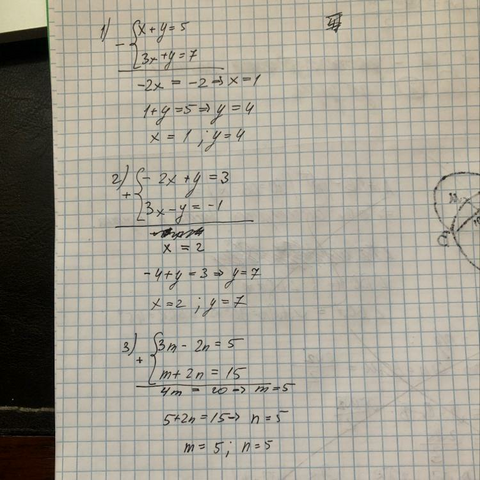 1) x + y = 5
- 3x + y = 7
-2x = -2 ⇒ x = 1
1 + y = 5 ⇒ y = 4
x = 1 ; y = 4
2) - 2x + y = 3
+ 3x - y = -1
x = 2
-4 + y = 3 ⇒ y = 7
x = 2 ; y = 7
3) 3m - 2n = 5
+ m + 2n = 15
4m = 20 → m = 5
5 + 2n = 15 → n = 5
m = 5 ; n = 5